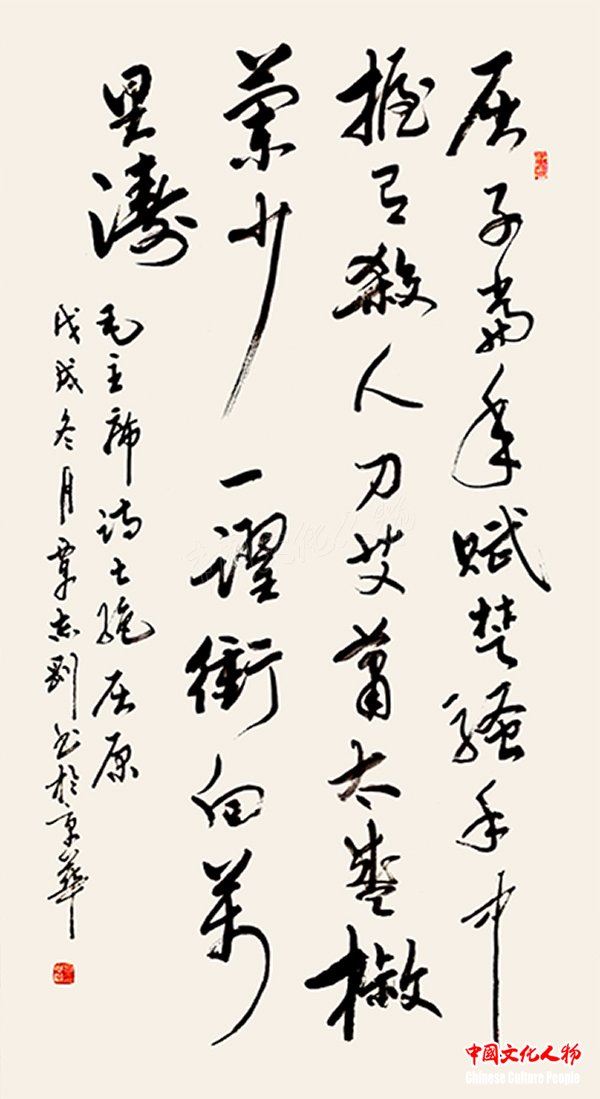 屈子當年賦楚騷手中
握有殺人刀艾蕭太盛椒
蘭少一躍衝向萬
里濤
毛主席詩七絕屈原
戊戌冬月覃志剛书於京華
中國文化人物
Chinese Culture People